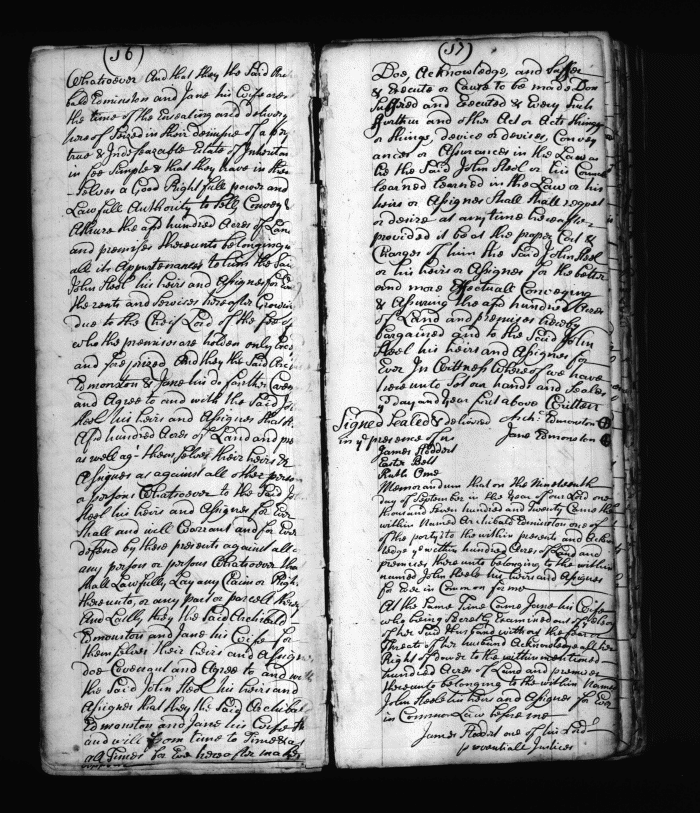 (36)
Whatsoever And that they the Said
bald Edminston and Jane his Wife are
the time of the Ensealing and delivery
true & Indefeazable Estate of Inheritan
in fee Simple & that they have in them
Selves a Good Right full power and
Lawfull Authority to Sell, Convey &
Assure the afd hundred Acres of Land
and premises thereunto belonging
all its Appurtenances to him the Said
John Steel his heirs and Assignes for
the rents and Services hereafter Growin
due to the Cheif Lord of the fee
who the premises are holden only Exc
and foreprized And they the Said Arch
Edmonston & Jane his do farther Coven
and Agree to and with the Said Jo
Steel his heirs and Assignes that
Afd hundred Acres of Land and pre
as well ag- themselves their heirs &
Assignes as against all other person
or persons Whatsoever to the Said Jo
Steel his heirs and Assignes for Ever
Shall and will Warrant and for Ever
defend by these presents against all
any person or persons Whatsoever tha
Shall Lawfully Lay any Claim or Right
thereunto, or any part or parcell there
And Lastly they the Said Archibald
Edmonston and Jane his Wife for
themselves their heirs and Assignes
doe Covenant and Agree to and with
the Said John Steel his heirs and
Assignes that they the Said Archibald
Edmonston and Jane his Wife
and will from time to Time &
all Times for Ever hereafter make
(37)
Doe, Acknowledge, and Suffer
& Execute or Cause to be made Don
Suffered and Executed & Every Such
further and other Act or Acts thing
or things, device or devises, Convey
ances or Assurances in the Law as
he the Said John Steel or his Councel
Learned Learned in the Law or his
heirs or Assignes Shall Shall request
or desire at any time hereafter
provided it be at the proper Cost &
Charges of him the Said John Steel
or his heirs or Assignes for the better
and more Effectuall Conveying
& Assuring the afd hundred Acres
of Land and premises hereby
bargained and to the Said John
Steel his heirs and Assignes for
Ever In Wittness Whereof we have
hereunto Set our hands and Seales
ye Day and year first above Written
Signed Sealed & delivered Archd Edmonston
in ye presence of us Jane Edmonston
James Steddert
Easter Belt
Ruth Orme
Memorandum that on the Nineteenth
day of September in the Year of our Lord one
thousand Seven hundred and Twenty Came the
within Named Archibald Edminston one of
the partys to the within presents and Ackn
ledge ye within hundred Acres of Land and
premises thereunto belonging to the within
named John Steele his heirs and Assignes
for Ever in Common for me
At the Same Time Came Jane his Wife
who being Secretly Examined out of hearing
of her Said Husband without the fear or
Threat of her husband Acknowledge all her
Right of Dower to the within mentioned
hundred Acres of Land and premises
thereunto belonging to the within Named
John Steele his heirs and Assignes for Ever
in Common Law before me
James Steddert one of his Lord
proventiall Justices